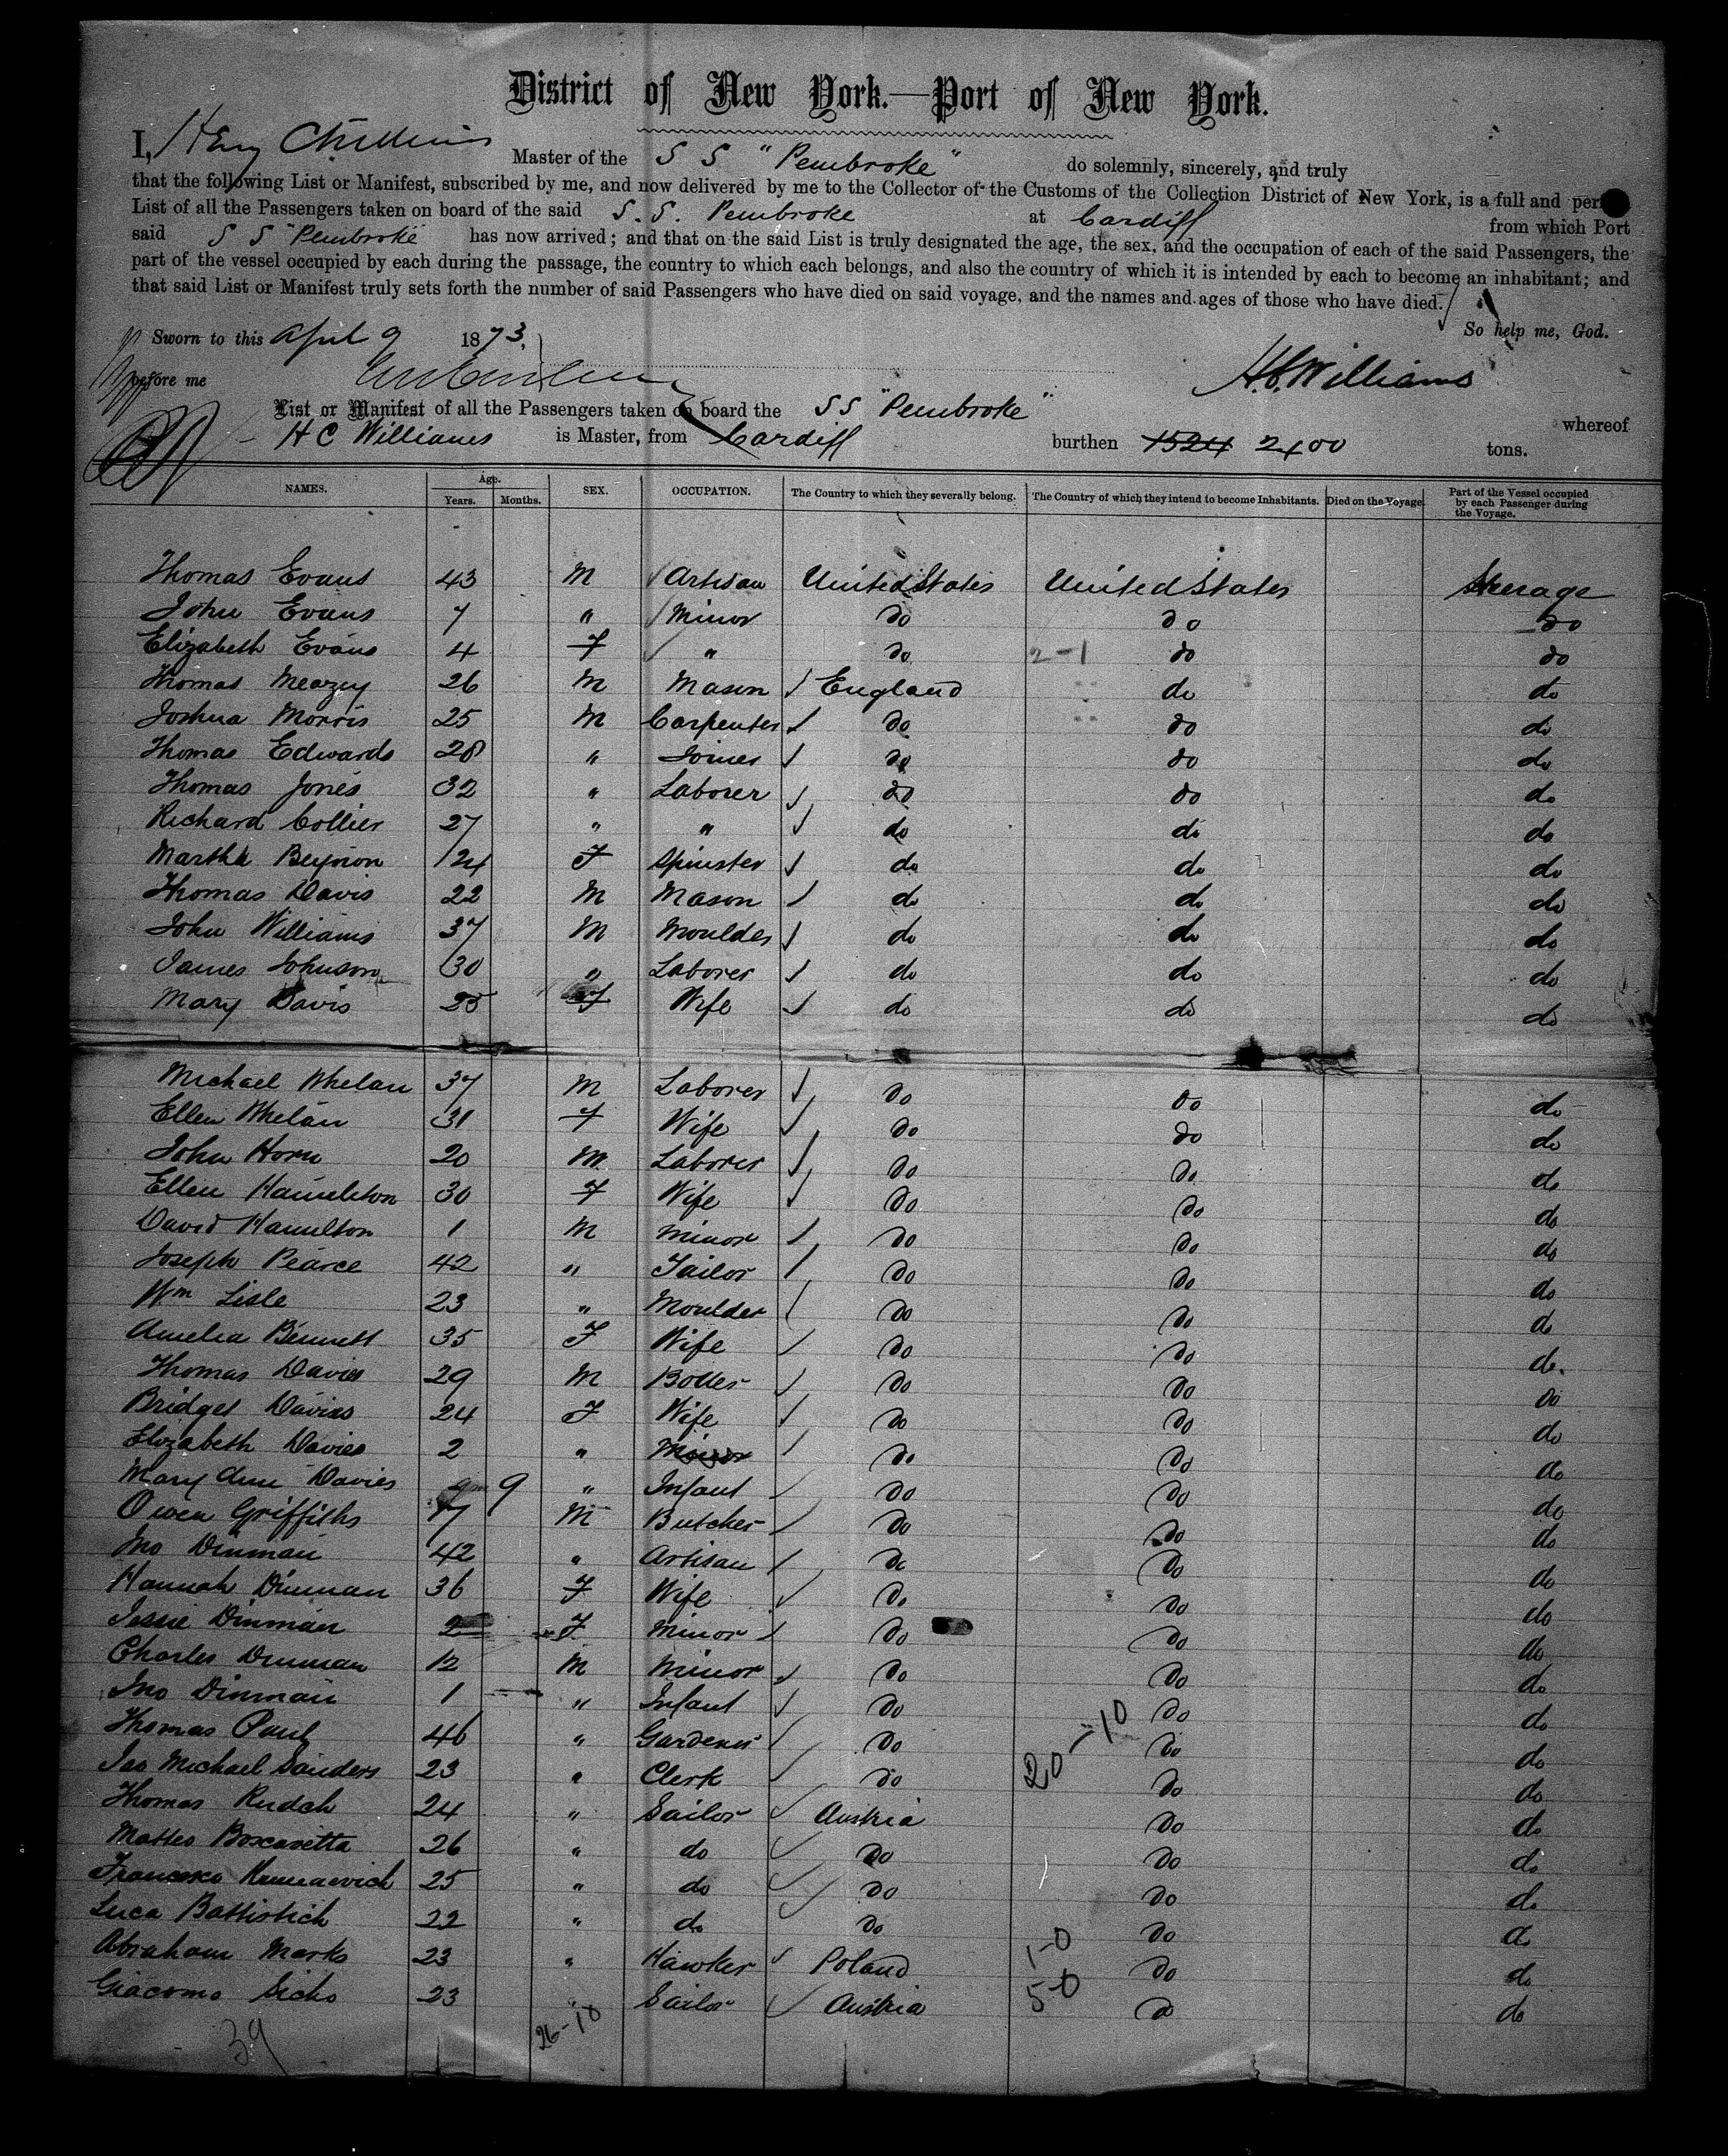 District of New York.—Port of New York.
I, Henry C Williams Master of the S S "Pembroke" do solemnly, sincerely, and truly
that the following List or Manifest, subscribed by me, and now delivered by me to the Collector of the Customs of the Collection District of New York, is a full and
List of all the Passengers taken on board of the said S. S. Pembroke at Cardiff from which Port
said S S "Pembroke" has now arrived; and that on the said List is truly designated the age, the sex, and the occupation of each of the said Passengers, the
part of the vessel occupied by each during the passage, the country to which each belongs, and also the country of which it is intended by each to become an inhabitant; and
that said List or Manifest truly sets forth the number of said Passengers who have died on said voyage, and the names and ages of those who have died.
So help me, God.
Sworn to this April 9 1873,
before me H.C. Williams
List or Manifest of all the Passengers taken on board the SS "Pembroke" whereof
H C Williams is Master, from Cardiff burthen 1524 2400 tons.
NAMES. Age. Years. Months. SEX. OCCUPATION. The Country to which they severally belong. The Country of which they intend to become Inhabitants. Died on the Voyage. Part of the Vessel occupied by each Passenger during the Voyage.
Thomas Evans 43 M Artisan United States United States Steerage
John Evans 7 " Minor do do do
Elizabeth Evans 4 F " do 2-1 do do
Thomas 26 M Mason England do do
Joshua Morris 25 M Carpenter do do do
Thomas Edwards 28 " Joiner do do do
Thomas Jones 32 " Laborer do do do
Richard Collier 27 " " do do do
Martha Beynon 24 F Spinster do do do
Thomas Davis 22 M Mason do do do
John Williams 37 M Moulder do do do
James Johnson 30 " Laborer do do do
Mary Davis 25 F Wife do do do
Michael Whelan 37 M Laborer do do do
Ellen Whelan 31 F Wife do do do
John Horn 20 M Laborer do do do
Ellen Hamilton 30 F Wife do do do
David Hamilton 1 M Minor do do do
Joseph Pearce 42 " Tailor do do do
Wm Lisle 23 " Moulder do do do
Amelia Bennett 35 F Wife do do do
Thomas Davies 29 M do do do
Bridget Davies 24 F Wife do do do
Elizabeth Davies 2 " Minor do do do
Mary Ann Davies 9 " Infant do do do
Owen Griffiths 17 M Butcher do do do
Jno Dinman 42 " Artisan do do do
Hannah Dinman 36 F Wife do do do
Jessie Dinman 2 F Minor do do do
Charles Dinman 12 M Minor do do do
Jno Dinman 1 " Infant do do do
Thomas Paul 46 " Gardener do do do
Jas Michael Sanders 23 " Clerk do 20-10 do do
Thomas Rudch 24 " Sailor Austria do do
Matteo Boscavetta 26 " do do do do
Francesco 25 " do do do do
Luca Battistich 22 " do do do do
Abraham Marks 23 " Hawker Poland 1-0 do do
Giacomo Sicks 23 " Sailor Austria 5-0 do do
39 26-10